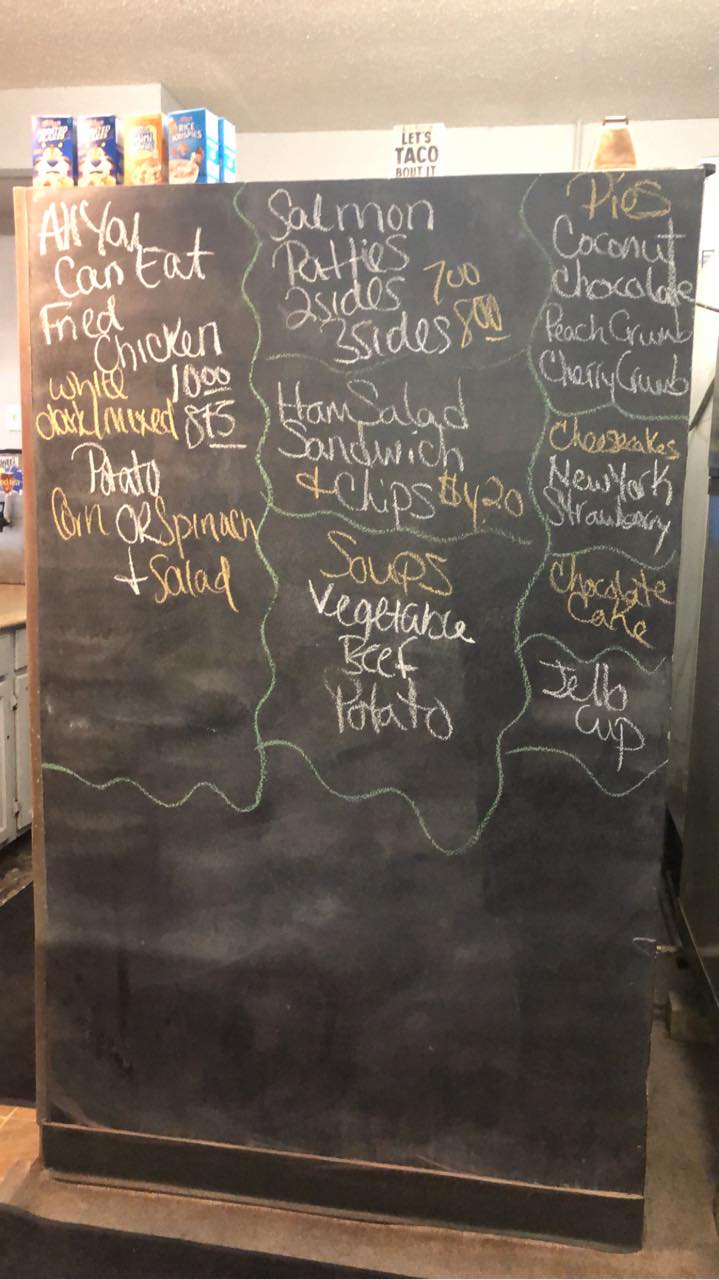 RICE
KRISPIES
LET'S
TACO
BOUT IT
All You
Can Eat
Fried
Chicken
white 10 00
dark/mixed 8 75
Potato
Corn OR Spinach
+ Salad
Salmon
Patties
2 sides 7 00
3 sides 8 00
Ham Salad
Sandwich
+ Chips $4.20
Soups
Vegetable
Beef
Potato
Pies
Coconut
Chocolate
Peach Crumb
Cherry Crumb
Cheesecakes
New York
Strawberry
Chocolate
Cake
Jello
Cup